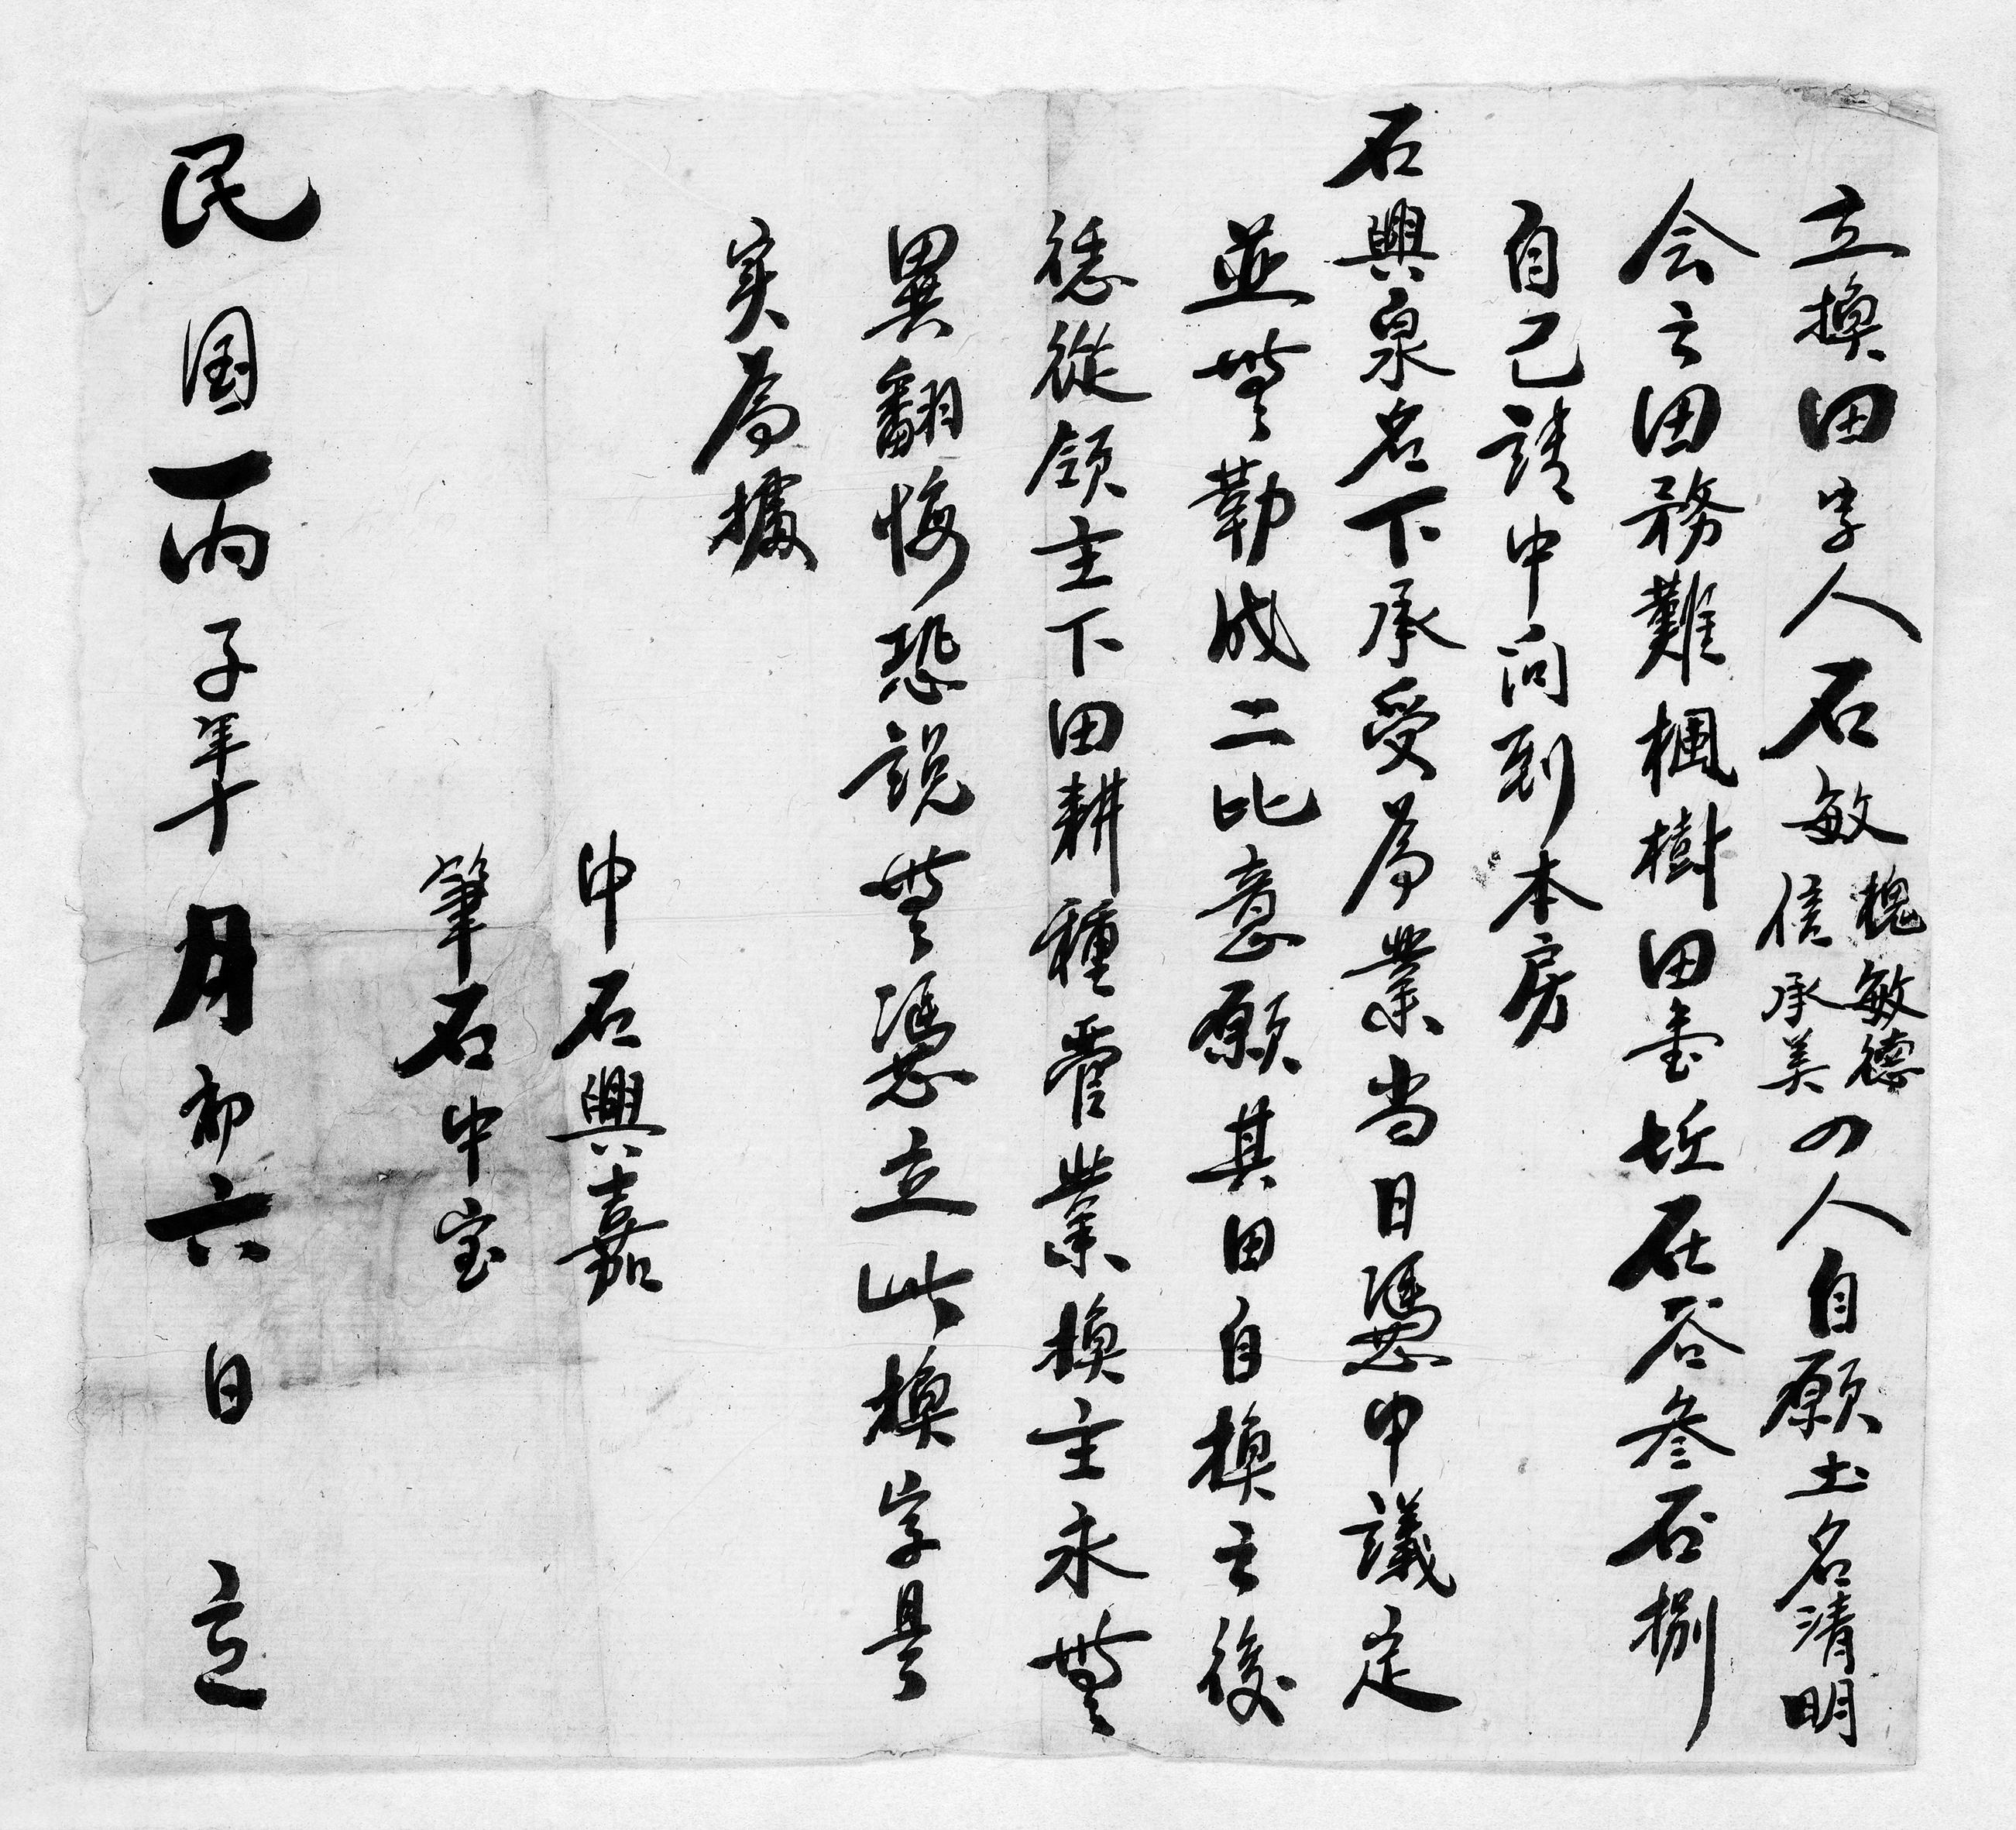 立換田字人石敏槐敏德信承美四人自願土名清明
会之田務難楓樹田壹坵在谷叁石捌
自己請中问到本房
石興泉名下承受為業当日憑中議定
並無勒成二比意愿其田自換之後
憑從領主下田耕種管業換主永無
異翻悔恐説無憑立此換字是
实為據
中石興嘉
筆石中宝
民国丙子年十月初六日立